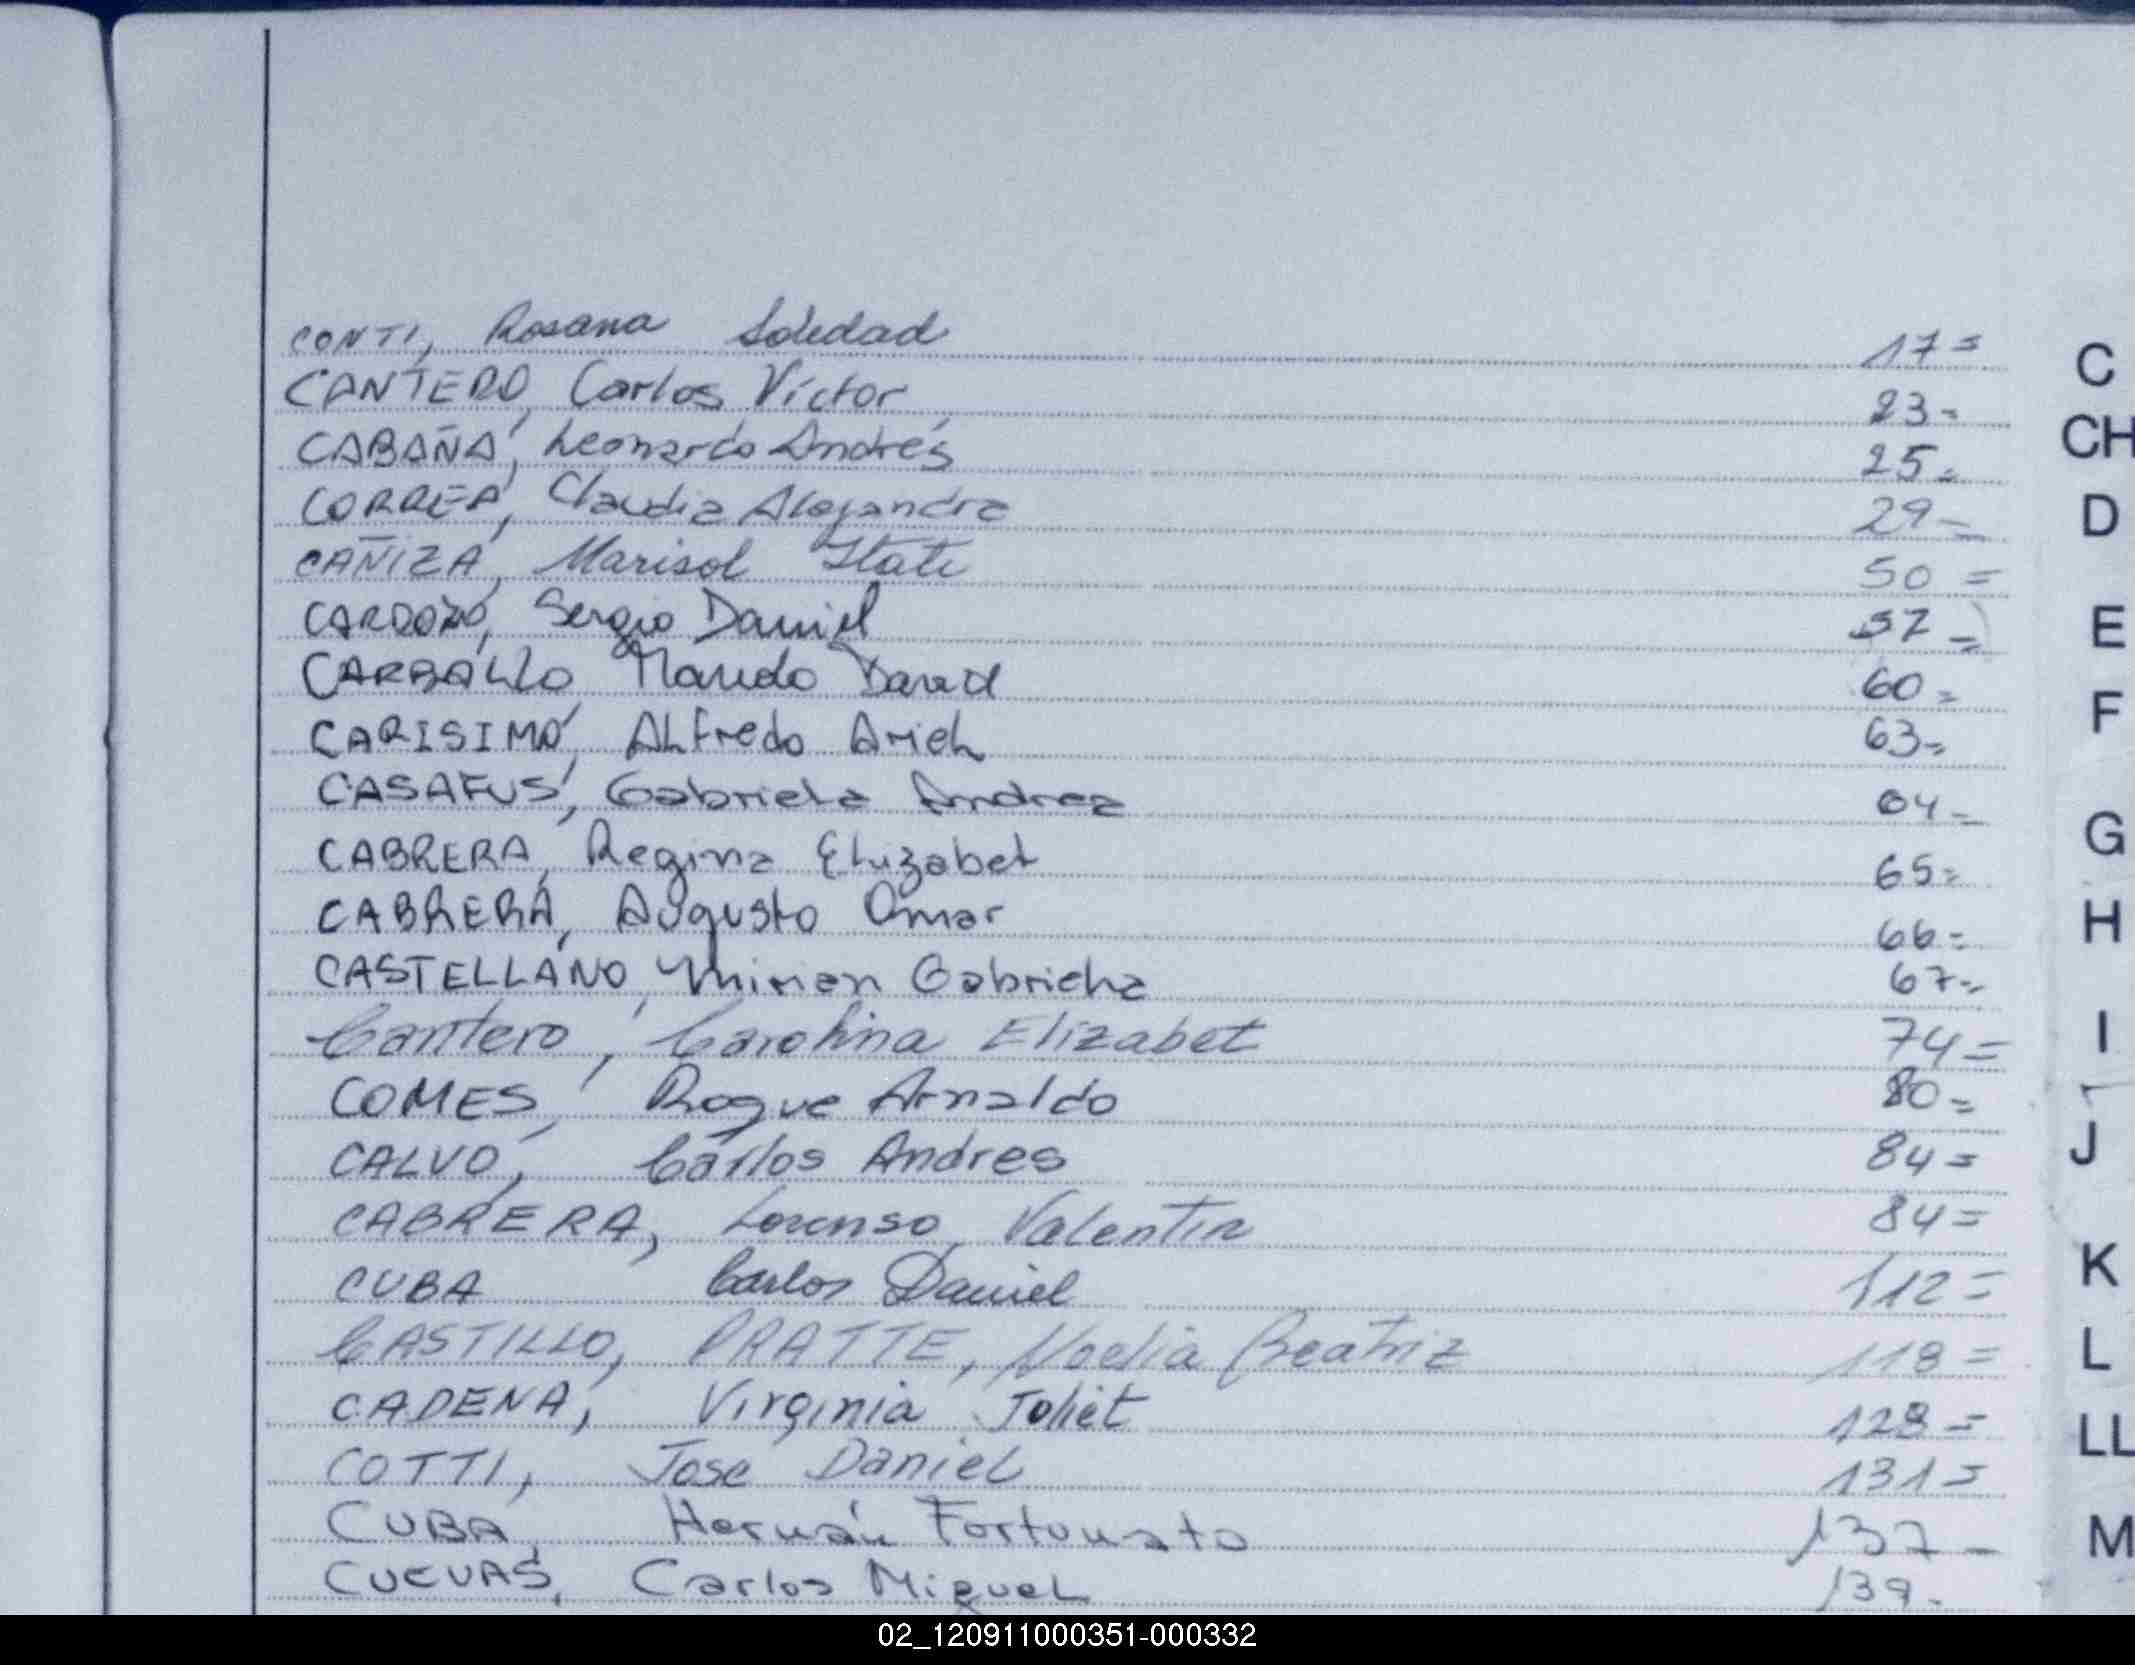 CONTI, Rosana Soledad 17=
C
CANTERO, Carlos Víctor 23=
CABAÑA, Leonardo Andrés 25=
CH
CORREA, Claudia Alejandra 29=
D
CAÑIZA, Marisol Itati 50=
CARDOZO, Sergio Daniel 57=
E
CARBALLO, David 60=
F
CARISIMO, Alfredo Ariel 63=
CASAFUS, Gabriela Andrea 64=
G
CABRERA, Regina Elizabet 65=
CABRERA, Augusto Omar 66=
H
CASTELLANO, Mirian Gabriela 67=
Cantero, Carolina Elizabet 74=
I
COMES, Roque Arnaldo 80=
CALVO, Carlos Andres 84=
J
CABRERA, Lorenso Valentin 84=
CUBA Carlos Daniel 112=
K
CASTILLO, PRATTE, Noelia Beatriz 118=
L
CADENA, Virginia Joliet 128=
LL
COTTI, Jose Daniel 131=
CUBA, Hernán Fortunato 137-
M
CUEVAS, Carlos Miguel 139-
02_120911000351-000332